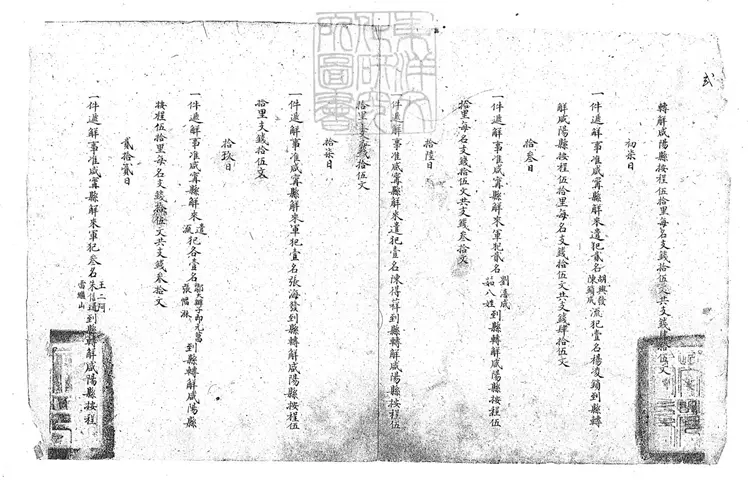 轉解咸陽縣按程伍拾里每名支錢拾伍文共支錢肆拾伍文
初柒日
一件遞解事准咸寧縣解來遣犯貳名胡興發陳鎖成流犯壹名楊凌頭到縣轉
解咸陽縣按程伍拾里每名支錢拾伍文共支錢肆拾伍文
拾叁日
一件遞解事准咸寧縣解來軍犯貳名劉潘成茹八姓到縣轉解咸陽縣按程伍
拾里每名支錢拾伍文共支錢叁拾文
拾陸日
一件遞解事准咸寧縣解來遣犯壹名陳得祥到縣轉解咸陽縣按程伍
拾里支錢拾伍文
拾柒日
一件遞解事准咸寧縣解來軍犯壹名張海發到縣轉解咸陽縣按程伍
拾里支錢拾伍文
拾玖日
一件遞解事准咸寧縣解來遣流犯各壹名鄒大辮子即元萬張幅淋到縣轉解咸陽縣
按程伍拾里每名支錢拾伍文共支錢叁拾文
貳拾貳日
一件遞解事准咸寧縣解來軍犯叁名王二阿朱信通雷繼山到縣轉解咸陽縣按程
東洋文化研究所圖書